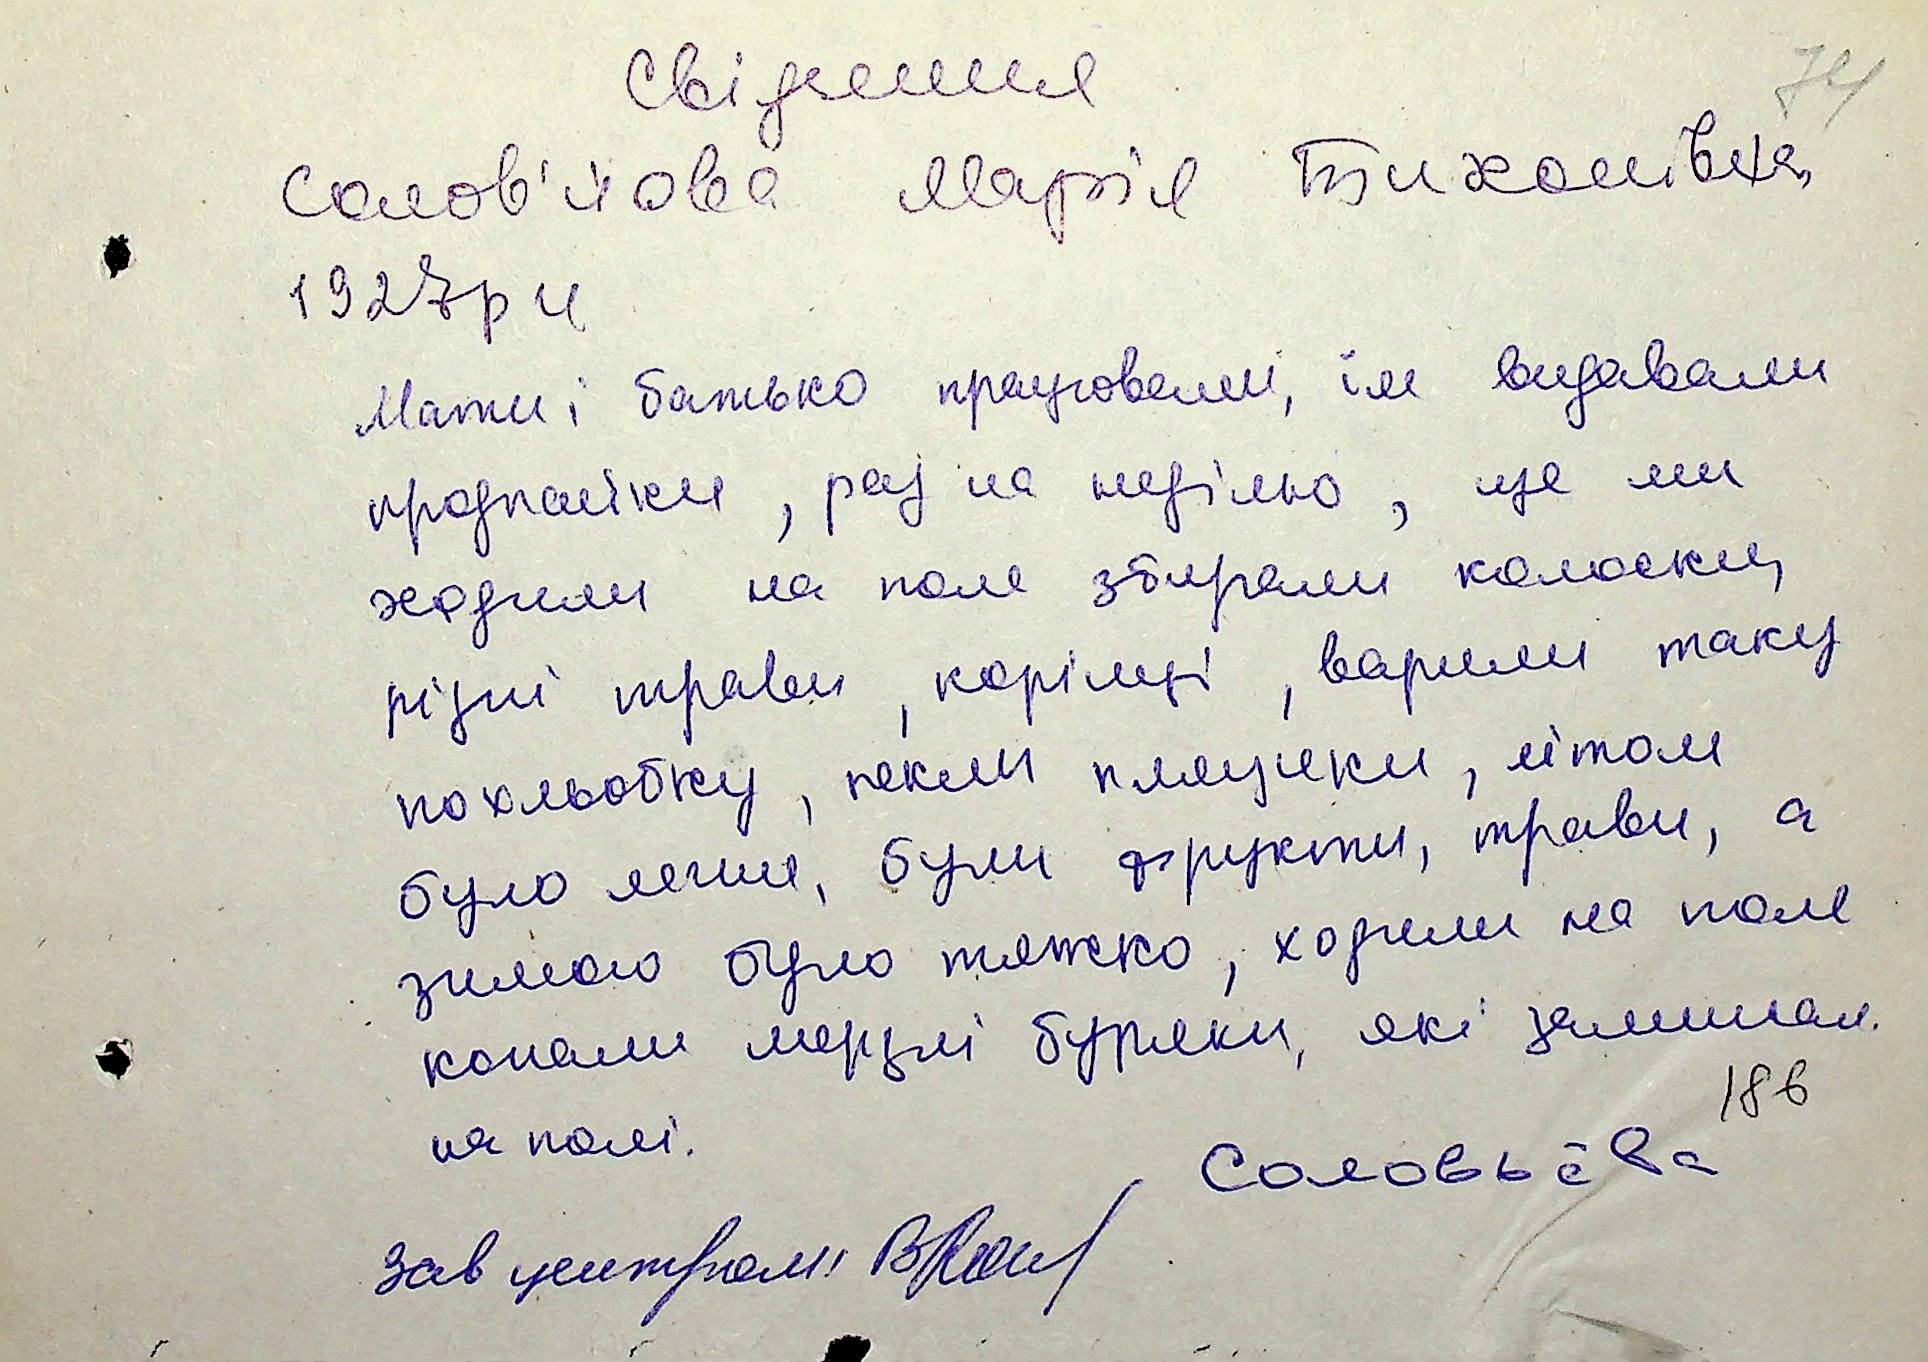 Свідчення
74
Солов'йова Марія Тихонівна,
1927 р н
Мати і батько працювали, їм видавали
продпайки, раз на неділю, ще ми
ходили на поле збирали колоски,
різні трави, корінці, варили таку
похльобку, пекли пляцики, літом
було легше, були фрукти, трави, а
зимою було тяжко, ходили на поле
копали мерзлі буряки, які залишал.
на полі.
186
Соловьёва
Зав центром: